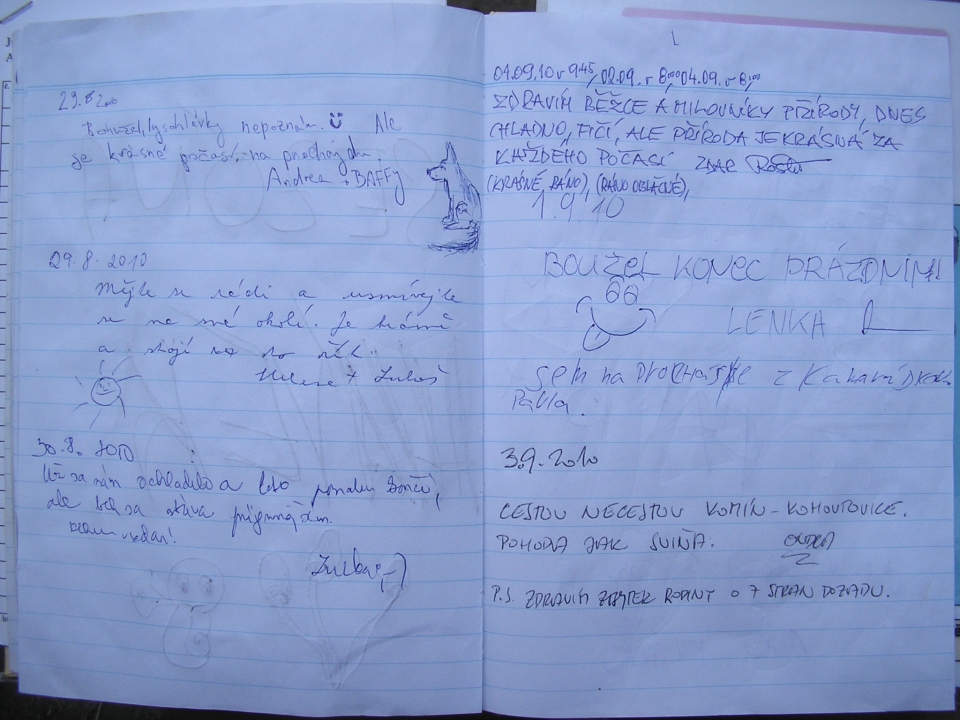 29.8 2010
Bohužel lysohlávky nepoznám. Ale
je krásné počasí na procházku.
Andrea + BAFFY
29.8. 2010
Mějte se rádi a usmívejte
se na své okolí. Je krásně
a stojí
Helena + Luboš
30.8. 2010
Už sa nám ochladilo a leto pomaly končí,
ale
1
01.09.10 v 9:45, 02.09. v 8,00 04.09. v 8,00
ZDRAVÍM BĚŽCE A MILOVNÍKY PŘÍRODY, DNES
CHLADNO, FIČÍ, ALE PŘÍRODA JE KRÁSNÁ ZA
KAŽDÉHO POČASÍ ZDAR
(KRÁSNÉ RÁNO), (RÁNO OBLAČNÉ),
1.9 10
BOUŽEL KONEC PRÁZDNIN!
LENKA
sem na prochajsce z kamarádkou
Pavla.
3.9.2010
CESTOU NECESTOU KOMÍN - KOHOUTOVICE.
POHODA JAK SVIŇA.
P.S. ZDRAVÍM ZBYTEK RODINY O 7 STRAN DOZADU.